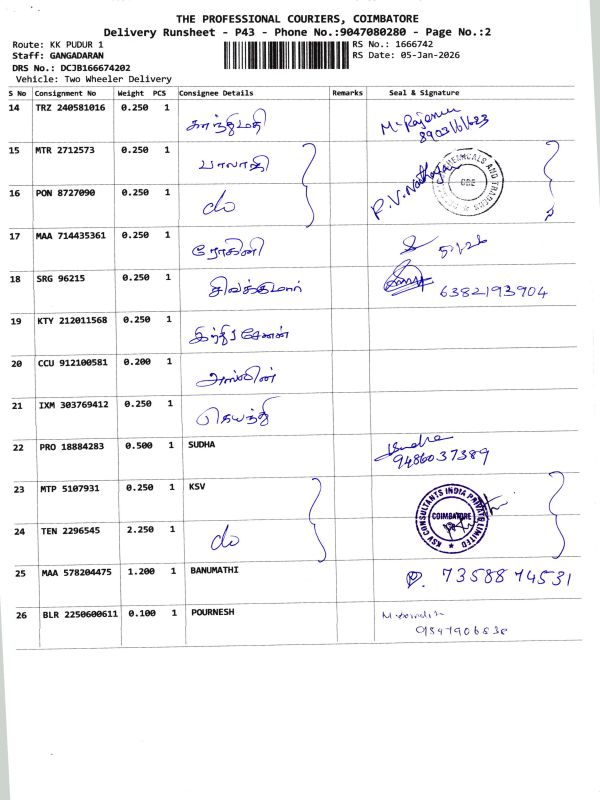 THE PROFESSIONAL COURIERS, COIMBATORE
Delivery Runsheet - P43 - Phone No.:9047080280 - Page No.:2
Route: KK PUDUR 1
RS No.: 1666742
Staff: GANGADARAN
RS Date: 05-Jan-2026
DRS No.: DCJB166674202
Vehicle: Two Wheeler Delivery
S No Consignment No Weight PCS Consignee Details Remarks Seal & Signature
14 TRZ 240581016 0.250 1 காந்திமதி M. Rajenni 8903161623
15 MTR 2712573 0.250 1 பாலாஜி P.V. Nathan CHEMICALS AND TRADERS CBE
16 PON 8727090 0.250 1 do
17 MAA 714435361 0.250 1 ரோகினி 5/1/26
18 SRG 96215 0.250 1 சிவக்குமார் 6382193904
19 KTY 212011568 0.250 1 இந்திரசேனன்
20 CCU 912100581 0.200 1 அஸ்வின்
21 IXM 303769412 0.250 1 ஜெயந்தி
22 PRO 18884283 0.500 1 SUDHA Sudha 9486037389
23 MTP 5107931 0.250 1 KSV KSV CONSULTANTS INDIA PRIVATE LIMITED COIMBATORE
24 TEN 2296545 2.250 1 do
25 MAA 578204475 1.200 1 BANUMATHI 7358874531
26 BLR 2250600611 0.100 1 POURNESH